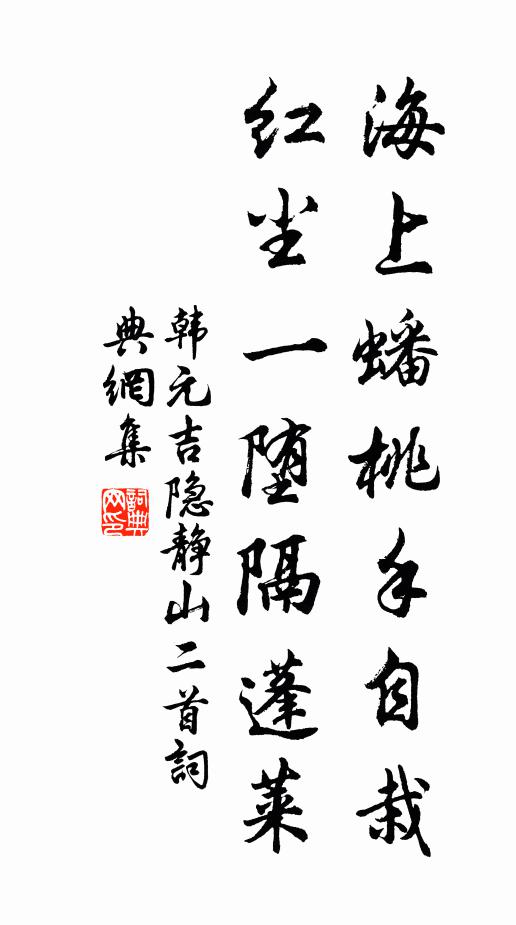 海上蟠桃手自栽
红尘一堕隔蓬莱
韩元吉隐静山二首詞
典網集
詞典网印